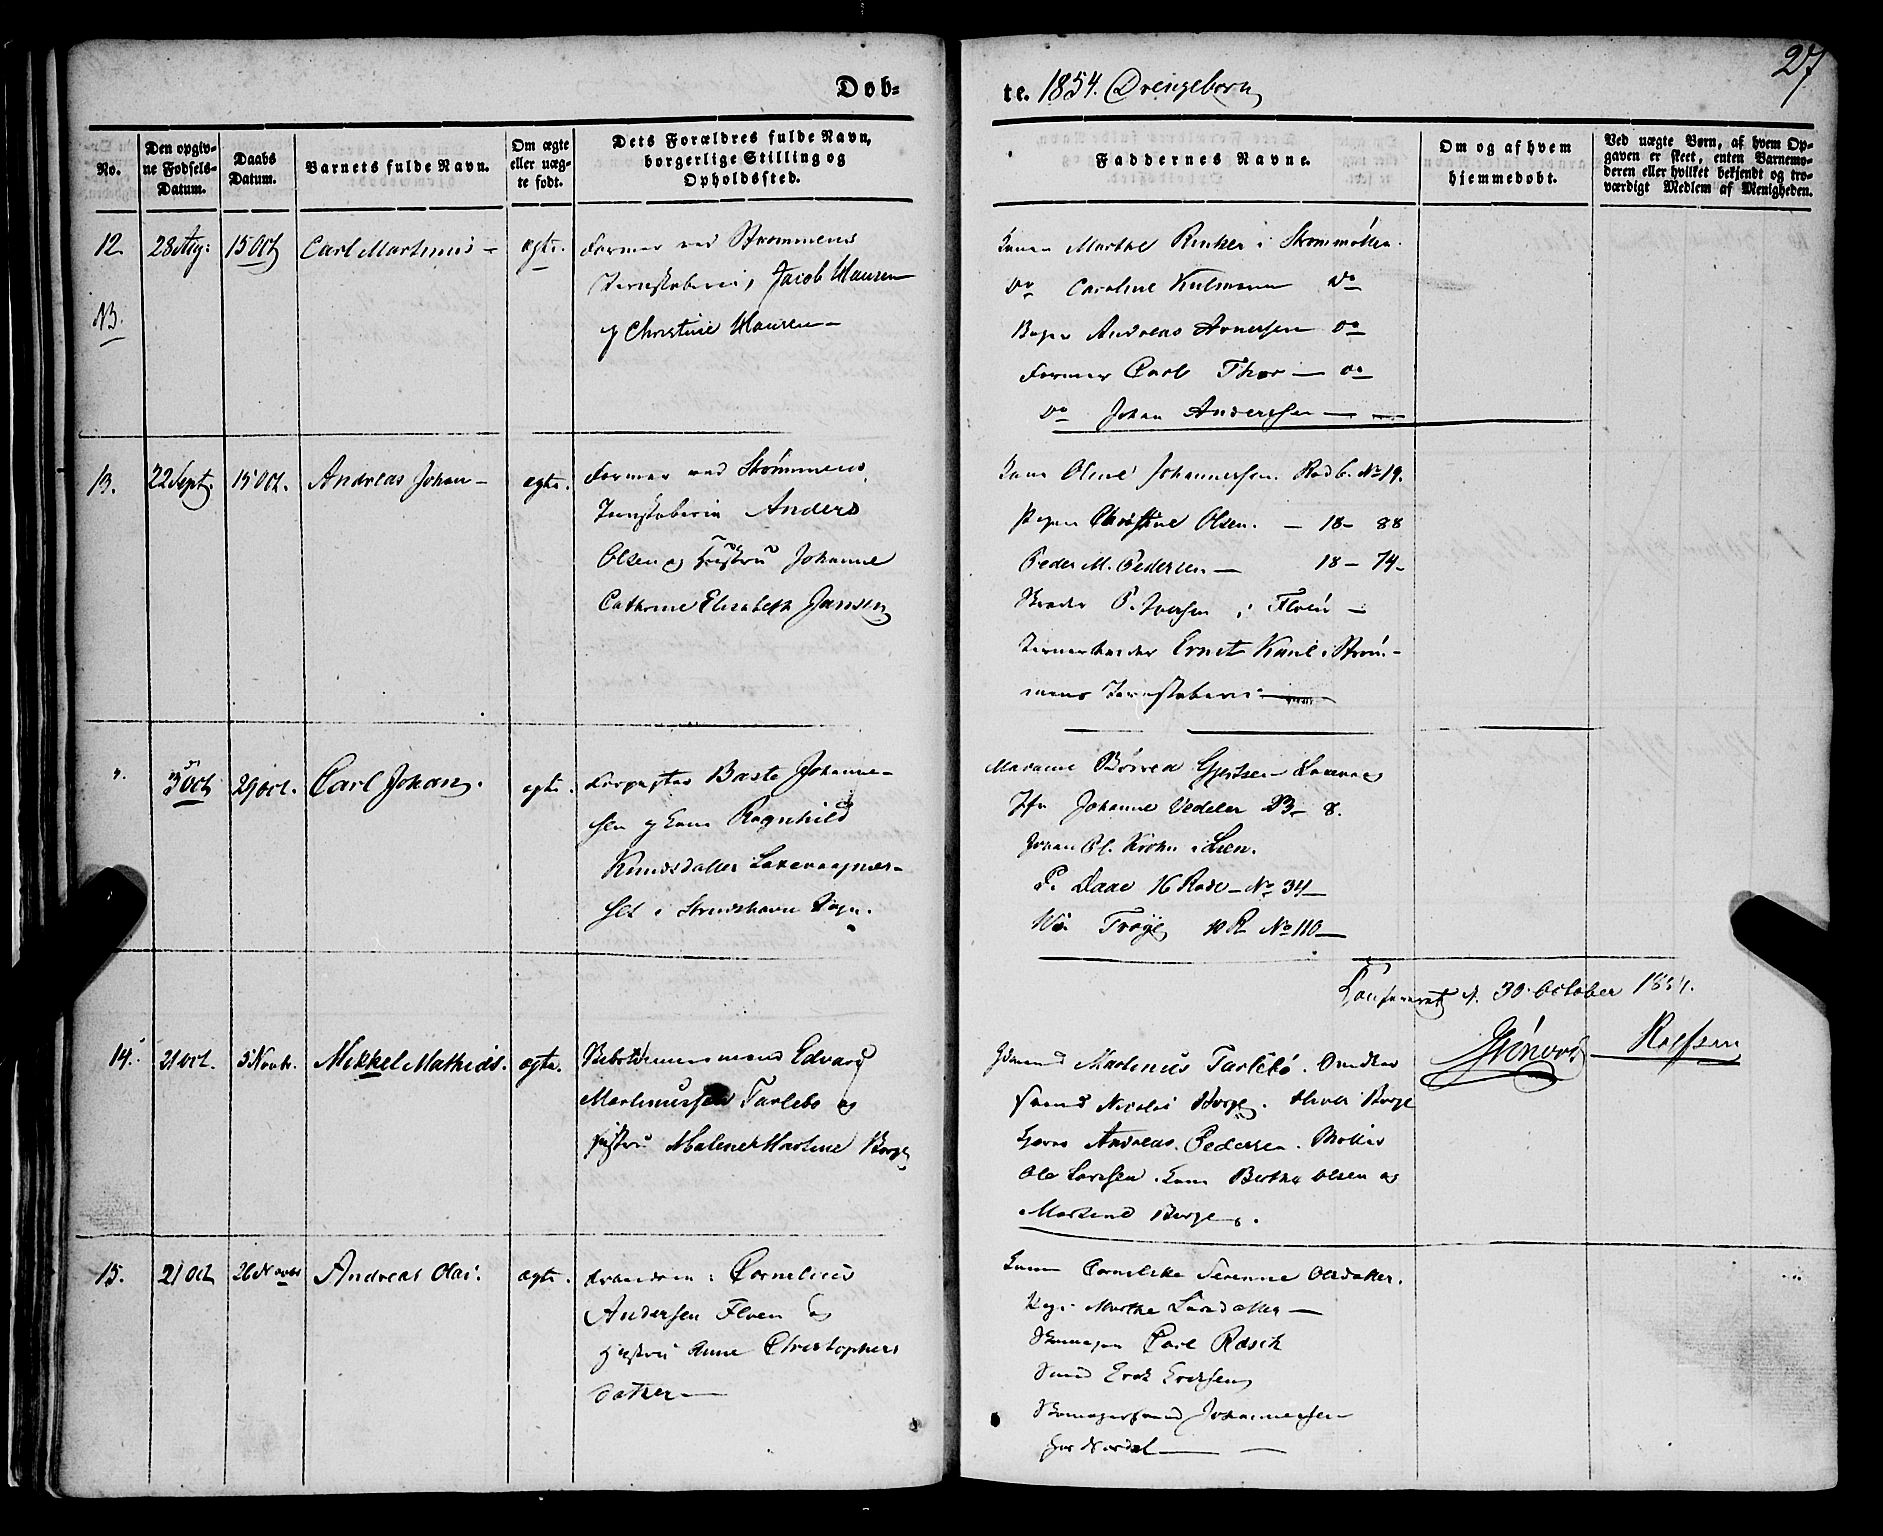 27
Døb=
te. 1854. Drengebørn
No.
Den opgiv-
ne Fødsels-
Datum.
Daabs
Datum.
Barnets fulde Navn.
Om ægte
eller uæg-
te født.
Dets Forældres fulde Navn,
borgerlige Stilling og
Opholdssted.
Faddernes Navne.
Om og af hvem
hjemmedøbt.
Ved uægte Børn, af hvem Op-
gaven er skeet, enten Barnemo-
deren eller hvilket bekjendt og tro-
værdigt Medlem af Menigheden.
12 28 Aug: 15 Oct Carl Martinus - ægte. Former ved Strømmens
Jernstøberi, Jacob Clausen
NB.
og Christine Clausen -
Kone Marthe Rinker i Strømmøllen.
Do Caroline Do
Andreas Do
Former Carl Thor - Do
Do Johan Andersen
13. 22 Sept. 15 Oct. Andreas Johan - ægte. Former ved Strømmens
Jernstøberie Anders
Olsen og Hustru Johanne
Cathrine Elisabeth Jansen
Kone Oline Johannessen Rode 6. No 19.
Pigen Christine Olsen. - 18 - 88
Peder M. Pedersen - 18 - 74 -
P. Iversen i Floen -
Ernst i Strøm-
mens Jernstøberi
" 3 Oct 29 Oct. Carl Johan. ægte. Baste Johanne-
sen og Kone Ragnhild
Knudsdatter Laxevaagnæs-
set i Strudshavn Sogn.
Madame Gjertsen Laxevaag
Jfr Johanne Vedeler 23 - 8.
Johan Krohn i Lien.
P. Daae 16 Rode - No 34 -
Troye 10 R No 110 -
Confereret d. 30 October 1854.
Rolfsen
14. 21 Oct. 5 Novbr. Mikkel Mathias. ægte. Edvard
Martinussen Tarlebø og
Hustru Malene Martine Borge
Martinus Tarlebø.
Nicolai Borge. Oliver Borge
Andreas Pedersen.
Ole Larssen. Kone Berthe Olsen og
Martine Borge.
15. 21 Oct 26 Novbr Andreas Olai. ægte. Cornelius
Andersen Floen og
Hustru Anne Christophers
datter -
Kone Cornelske Serenne Olsdatter.
Pige Marthe Larsdatter -
Skomager Carl Rasch
Smed Erik Eriksen
Skomagersvend Johannessen